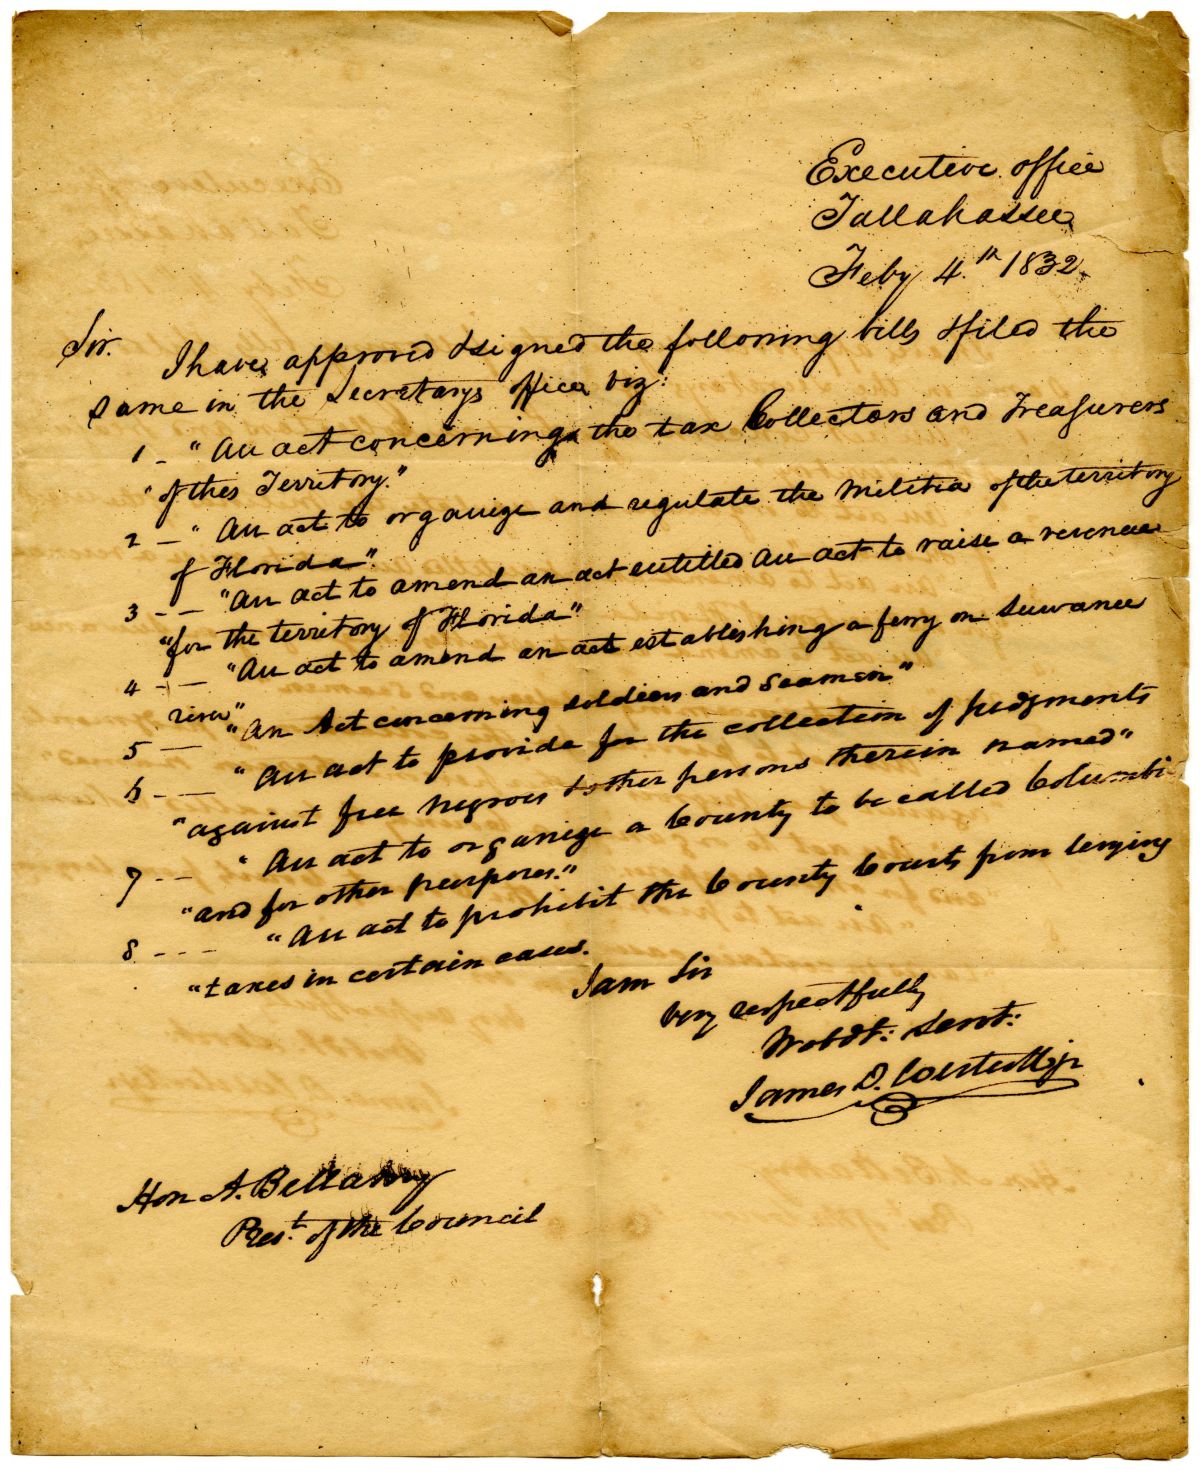 Executive office
Tallahassee
Feby 4.th 1832.
Sir.
I have approved & signed the following bills & filed the
same in the Secretarys office viz:
1 – "An act concerning the tax Collectors and Treasurers
"of this Territory."
2 – "An act to organize and regulate the Militia of the territory
of Florida".
3 – – "An act to amend an act entitled An act to raise a revenue
"for the territory of Florida"
4 – – "An act to amend an act establishing a ferry on Suwanee
river"
5 – "An Act concerning soldiers and Seamen"
6 – – "An act to provide for the collection of judgments
"against free Negroes & other persons therein named"
7 – – "An act to organize a County to be called Columbi
"and for other purposes."
8 – – – "An act to prohibit the County Courts from levying
"taxes in certain cases.
I am Sir
very respectfully
Yr obdt: Servt:
James D. Westcott jr
Hon A. Bellamy
Prest. of the Council